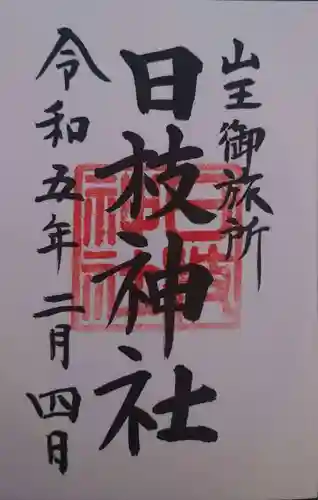 山王御旅所
日枝神社
令和五年二月四日
日枝神社